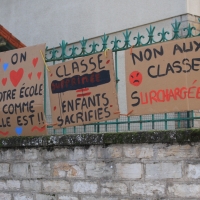 ON
NOTRE ÉCOLE
COMME
ELLE EST !!
CLASSE
=
ENFANTS
SACRIFIÉS
NON AUX
CLASSES
SURCHARGÉES